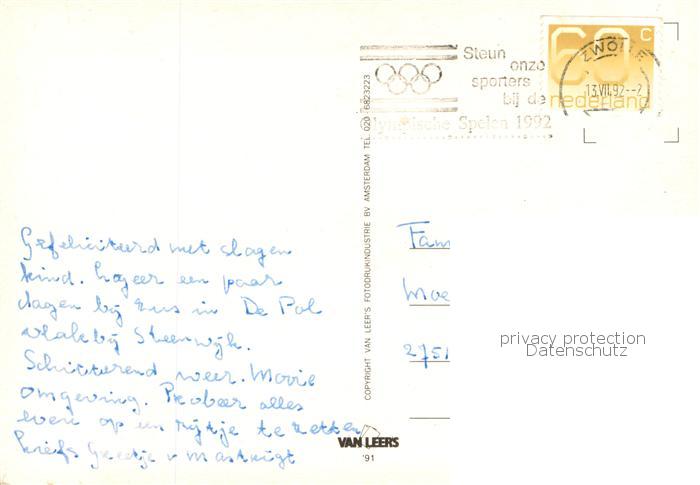 Steun
onze
sporters
bij de
Olympische Spelen 1992
60 c
nederland
ZWOLLE
13.VII.92
Gefeliciteerd met slagen
kind. Logeer een paar
dagen bij Zus in De Pol
vlakbij Steenwijk.
Schitterend weer. Mooie
omgeving. Probeer alles
even op een rijtje te zetten
liefs Greetje v Mastrigt
COPYRIGHT VAN LEER'S FOTODRUKINDUSTRIE BV AMSTERDAM TEL. 020 - 6823223
VAN LEERS
'91
Fam
Moe
2751
privacy protection
Datenschutz